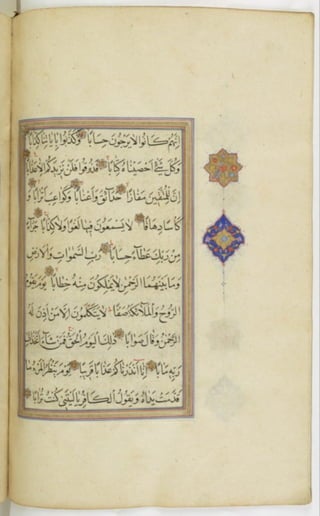 إِنَّهُمْ كَانُوا لَا يَرْجُونَ حِسَابًا وَكَذَّبُوا بِآيَاتِنَا كِذَّابًا
وَكُلَّ شَيْءٍ أَحْصَيْنَاهُ كِتَابًا فَذُوقُوا فَلَنْ نَزِيدَكُمْ إِلَّا عَذَابًا
إِنَّ لِلْمُتَّقِينَ مَفَازًا حَدَائِقَ وَأَعْنَابًا وَكَوَاعِبَ أَتْرَابًا وَ
كَأْسًا دِهَاقًا لَا يَسْمَعُونَ فِيهَا لَغْوًا وَلَا كِذَّابًا جَزَاءً
مِنْ رَبِّكَ عَطَاءً حِسَابًا رَبِّ السَّمٰوَاتِ وَالْأَرْضِ
وَمَا بَيْنَهُمَا الرَّحْمٰنِ لَا يَمْلِكُونَ مِنْهُ خِطَابًا يَوْمَ يَقُومُ
الرُّوحُ وَالْمَلَائِكَةُ صَفًّا لَا يَتَكَلَّمُونَ إِلَّا مَنْ أَذِنَ لَهُ
الرَّحْمٰنُ وَقَالَ صَوَابًا ذٰلِكَ الْيَوْمُ الْحَقُّ فَمَنْ شَاءَ اتَّخَذَ إِلَى
رَبِّهِ مَآبًا إِنَّا أَنْذَرْنَاكُمْ عَذَابًا قَرِيبًا يَوْمَ يَنْظُرُ الْمَرْءُ مَا
قَدَّمَتْ يَدَاهُ وَيَقُولُ الْكَافِرُ يَا لَيْتَنِي كُنْتُ تُرَابًا